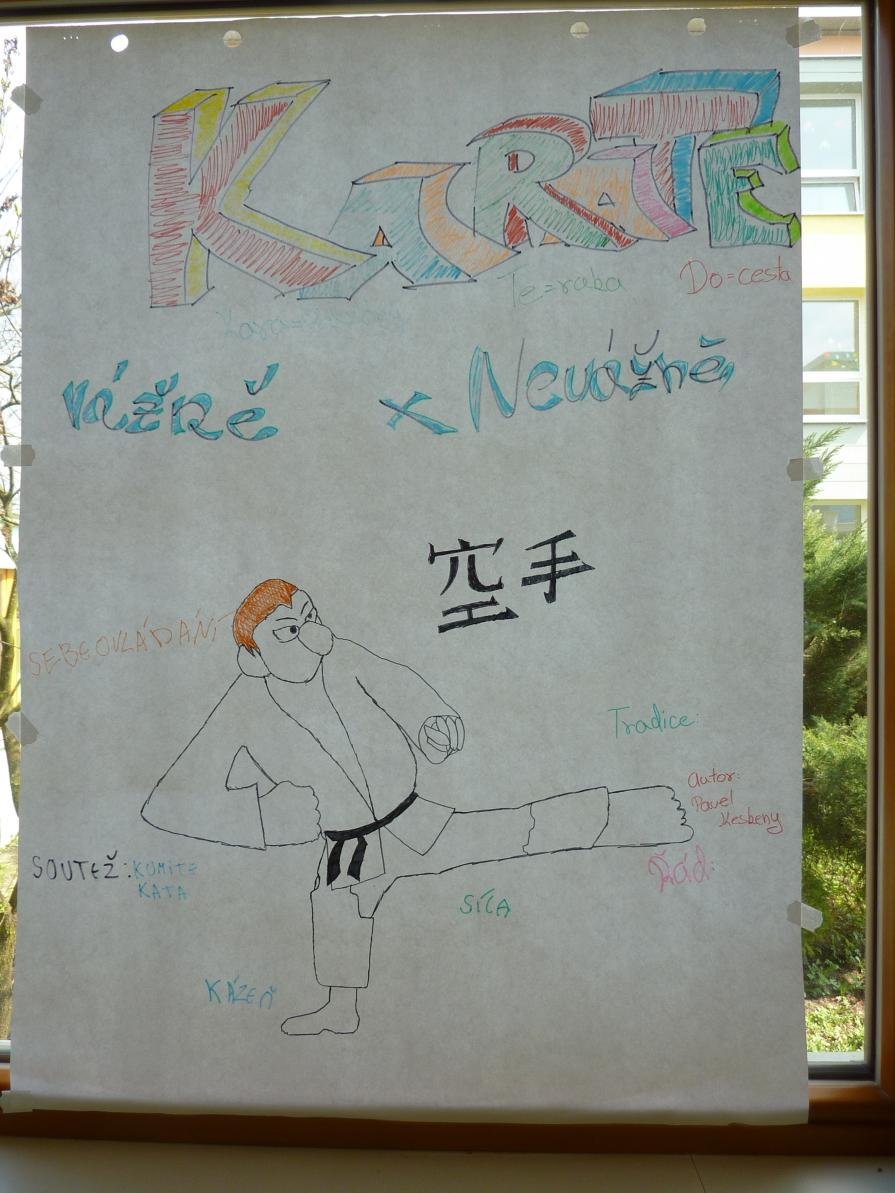 KARATE
Te=raba Do=cesta
Vážně x Nevážně
空手
SEBEOVLÁDÁNÍ
Tradice:
Autor:
Pavel
Keskeny
SOUTĚŽ: KUMITE
KATA
Řád:
SÍLA
KÁZEŇ